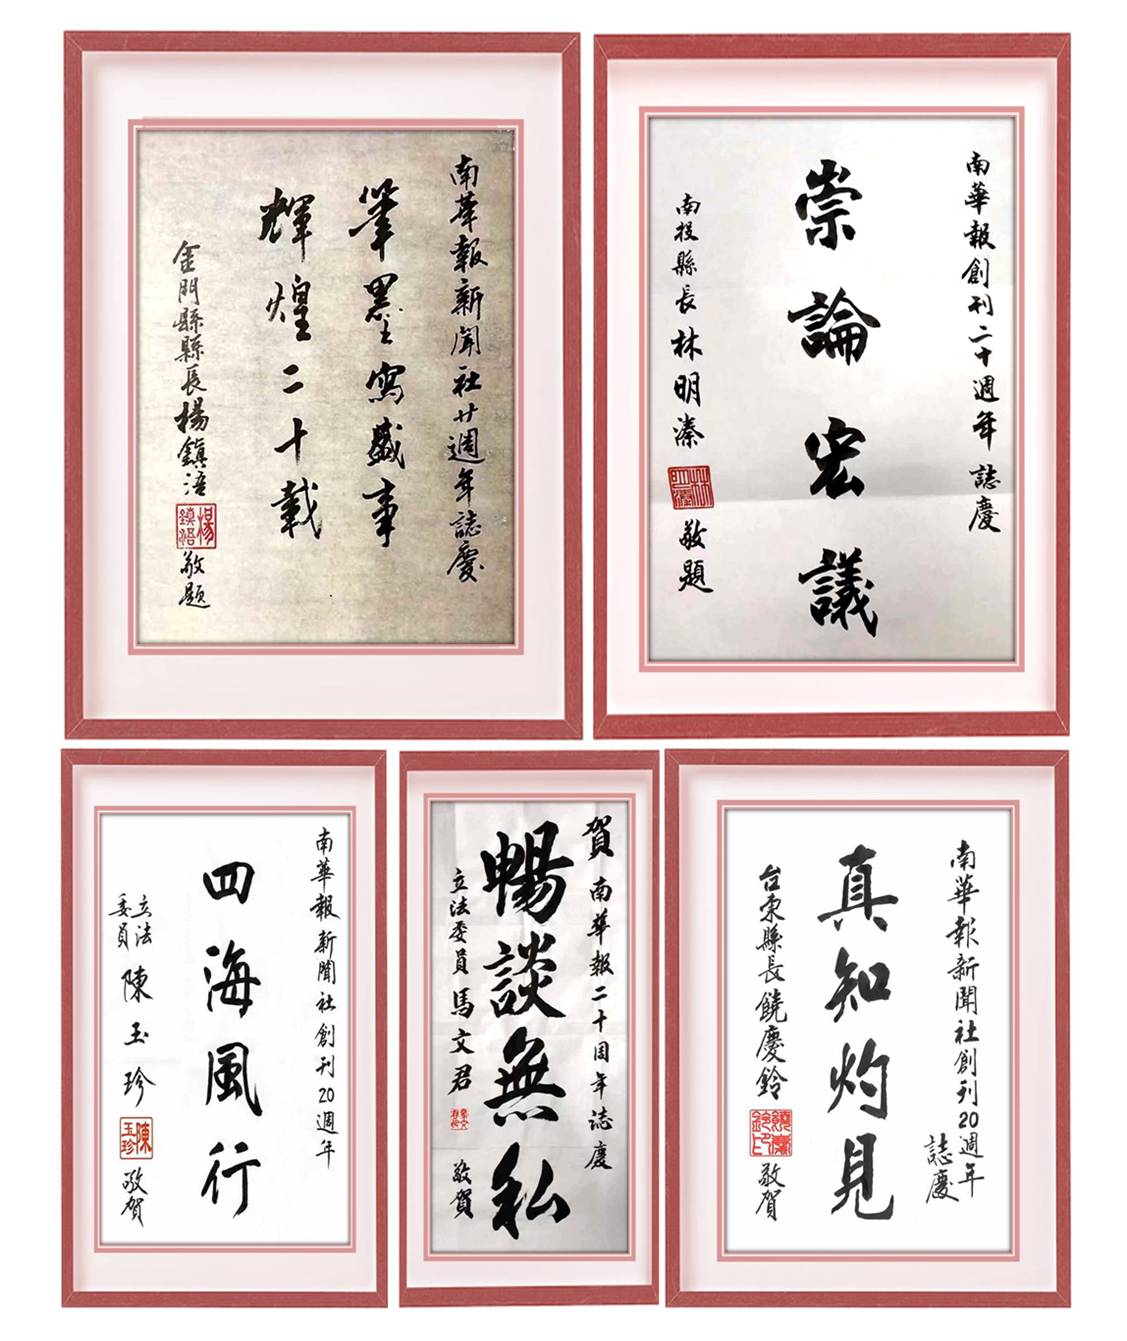 南華報新聞社廿週年誌慶
筆墨寫盛事
輝煌二十載
金門縣縣長楊鎮浯敬題
楊鎮浯
南華報創刊二十週年誌慶
崇論宏議
南投縣長林明溱敬題
林明溱
南華報新聞社創刊20週年
四海風行
立法委員陳玉珍敬賀
陳玉珍
賀南華報二十周年誌慶
暢談無私
立法委員馬文君敬賀
南華報新聞社創刊20週年
誌慶
真知灼見
台東縣長饒慶鈴敬賀
饒慶鈴印